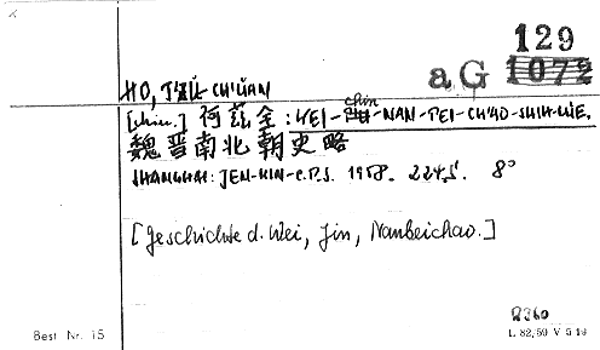 129
aG 1072
HO, TZŬ-CH'ÜAN
[chin.] 何茲全: WEI-chin-NAN-PEI-CH'AO-SHIH-LÜE.
魏晋南北朝史略
SHANGHAI: JEN-MIN-C.P.S. 1958. 224 S. 8°
[Geschichte d. Wei, Jin, Nanbeichao.]
Best Nr. 15
L. 82/59 V 5 19